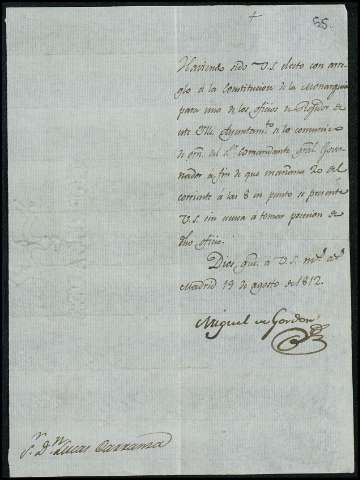 +
58.
Haviendo sido V.S. electo con arre-
glo á la Constitucion de la Monarquia
para uno de los oficios de Regidor de
este Ille. Ayuntamto. se lo comunico
de orn. del Sr. Comandante gral. Gover-
nador a fin de que mañana 20 del
corriente a las 8 en punto se presente
V.S. sin a tomar posesion de
dho. oficio.
Dios gue. a V.S. ms. as.
Madrid 19 de agosto de 1812.
Miguel de Gordon
Sr. Dn. Lucas Carranza